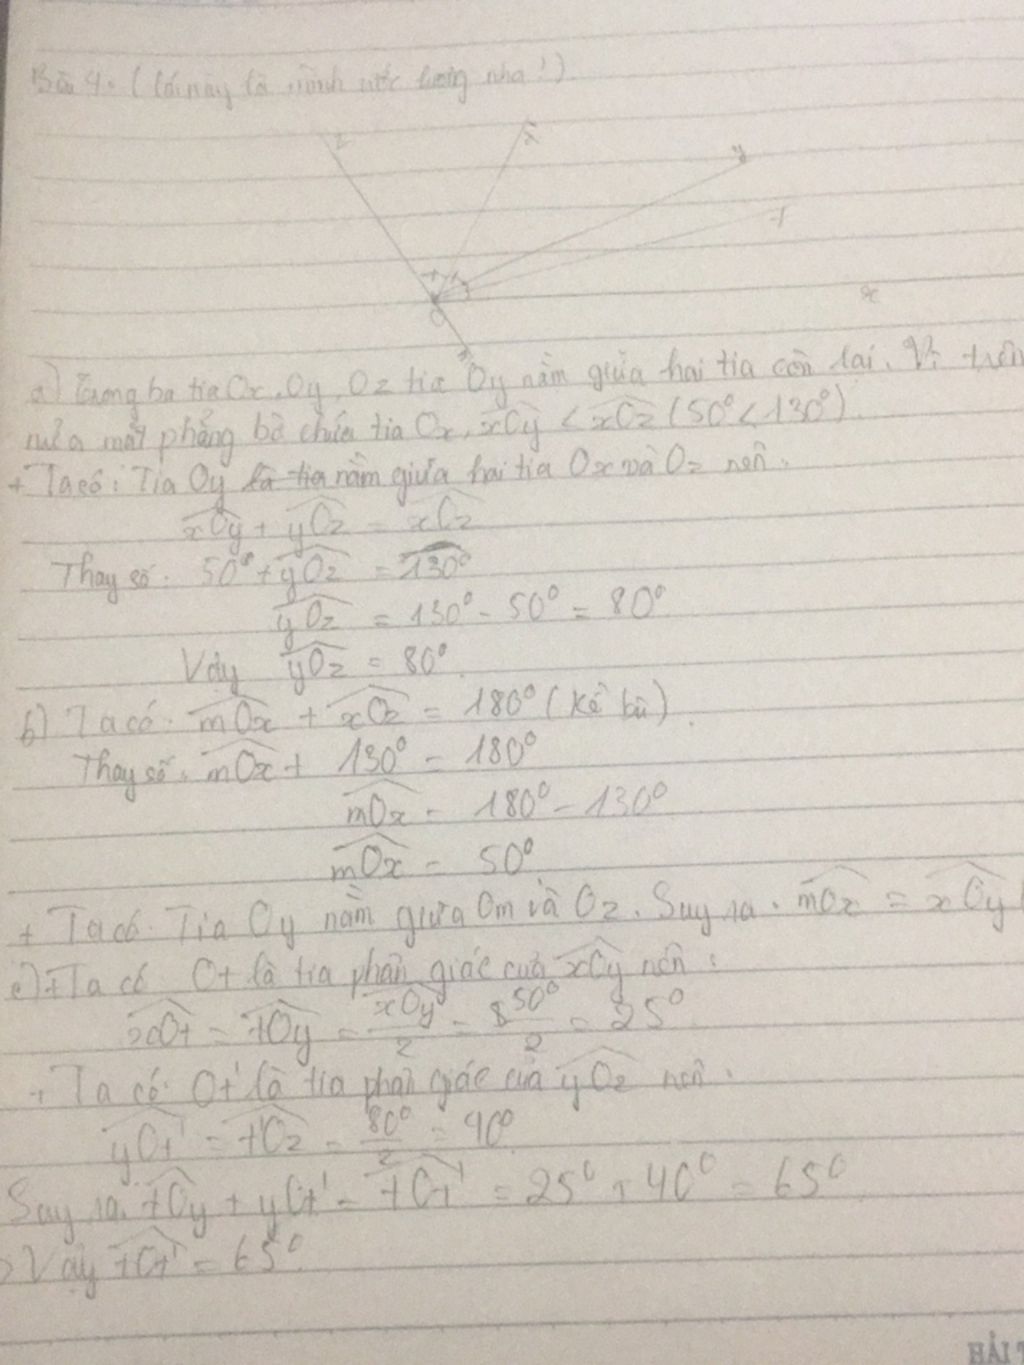 Bài 4: (cái này là mình ước lượng nha!)
z
x
y
t
x
O
a) Trong ba tia Ox, Oy, Oz tia Oy nằm giữa hai tia còn lại. Vì trên
nửa mặt phẳng bờ chứa tia Ox, xOy < xOz (50° < 130°).
+ Ta có: Tia Oy là tia nằm giữa hai tia Ox và Oz nên:
xOy + yOz = xOz
Thay số: 50° + yOz = 130°
yOz = 130° - 50° = 80°
Vậy yOz = 80°
b) Ta có: mOx + xOz = 180° (kề bù).
Thay số: mOx + 130° = 180°
mOx = 180° - 130°
mOx = 50°
+ Ta có: Tia Oy nằm giữa Om và Oz. Suy ra: mOx = xOy (
c) + Ta có Ot là tia phân giác của xOy nên:
xOt = tOy = xOy/2 = 50°/2 = 25°
+ Ta có: Ot' là tia phân giác của yOz nên:
yOt' = t'Oz = 80°/2 = 40°
Suy ra: tOy + yOt' = tOt' = 25° + 40° = 65°
Vậy tOt' = 65°
HẢI